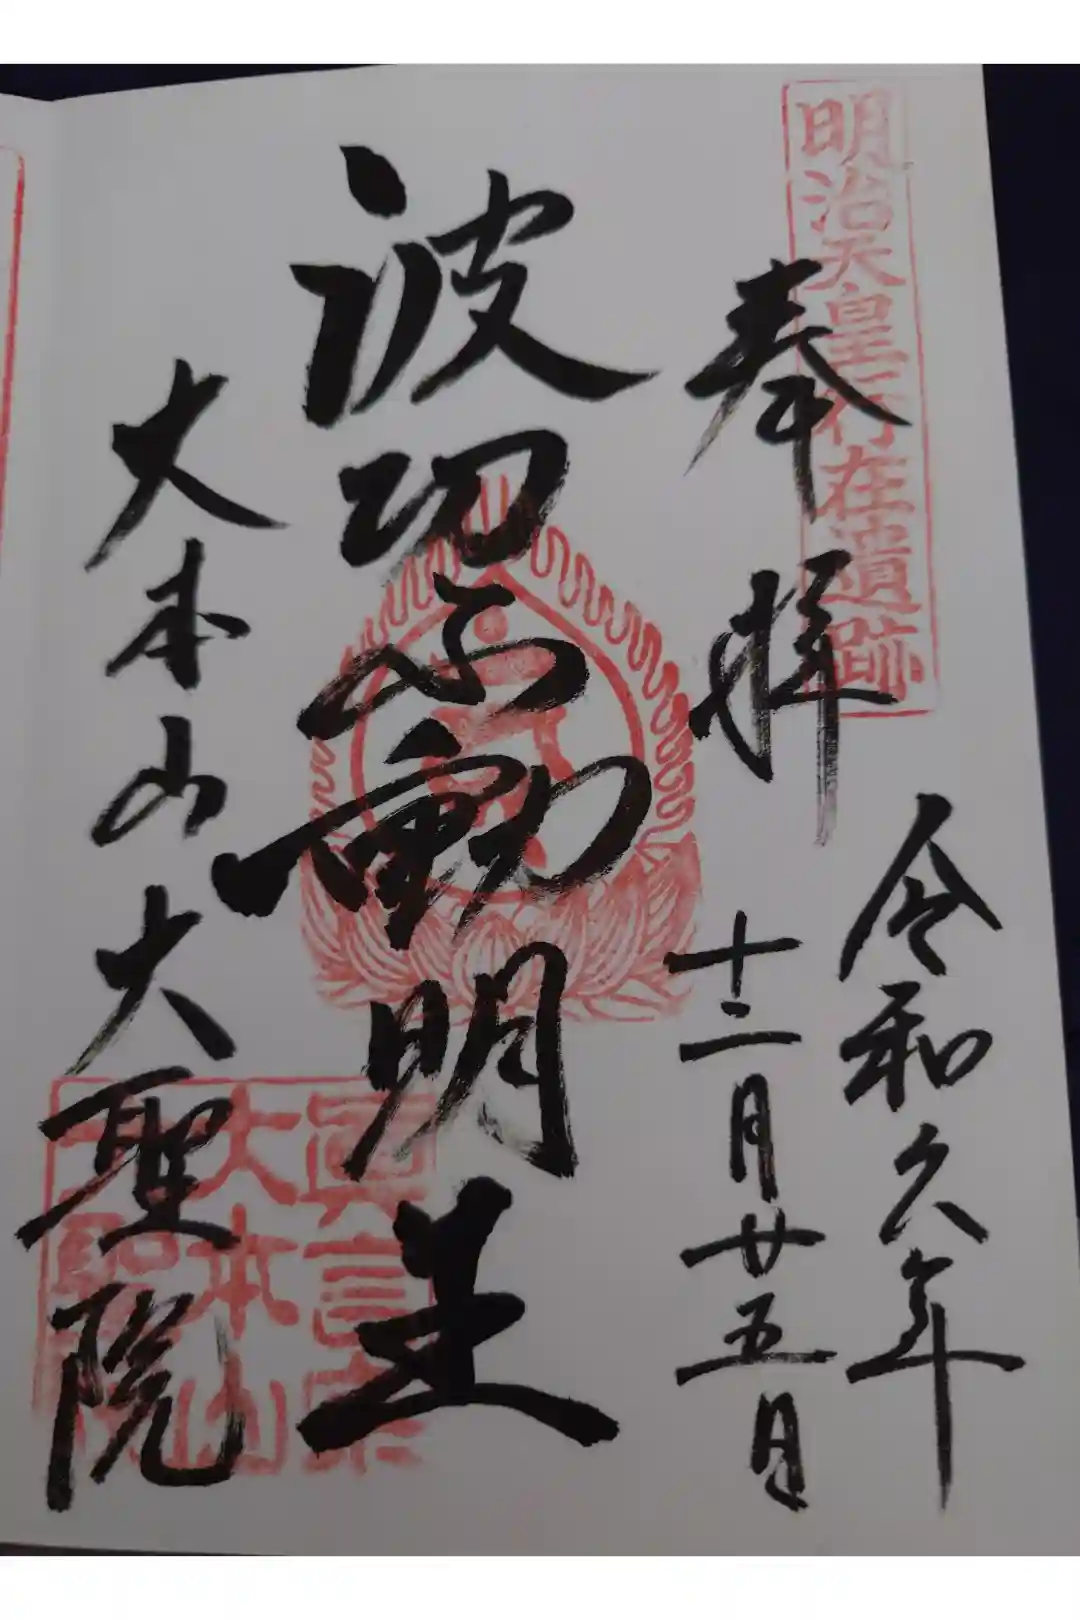 明治天皇行在遺跡
奉拝
令和六年
十二月廿五日
波切不動明王
大本山大聖院
真言宗
大本山
大聖院